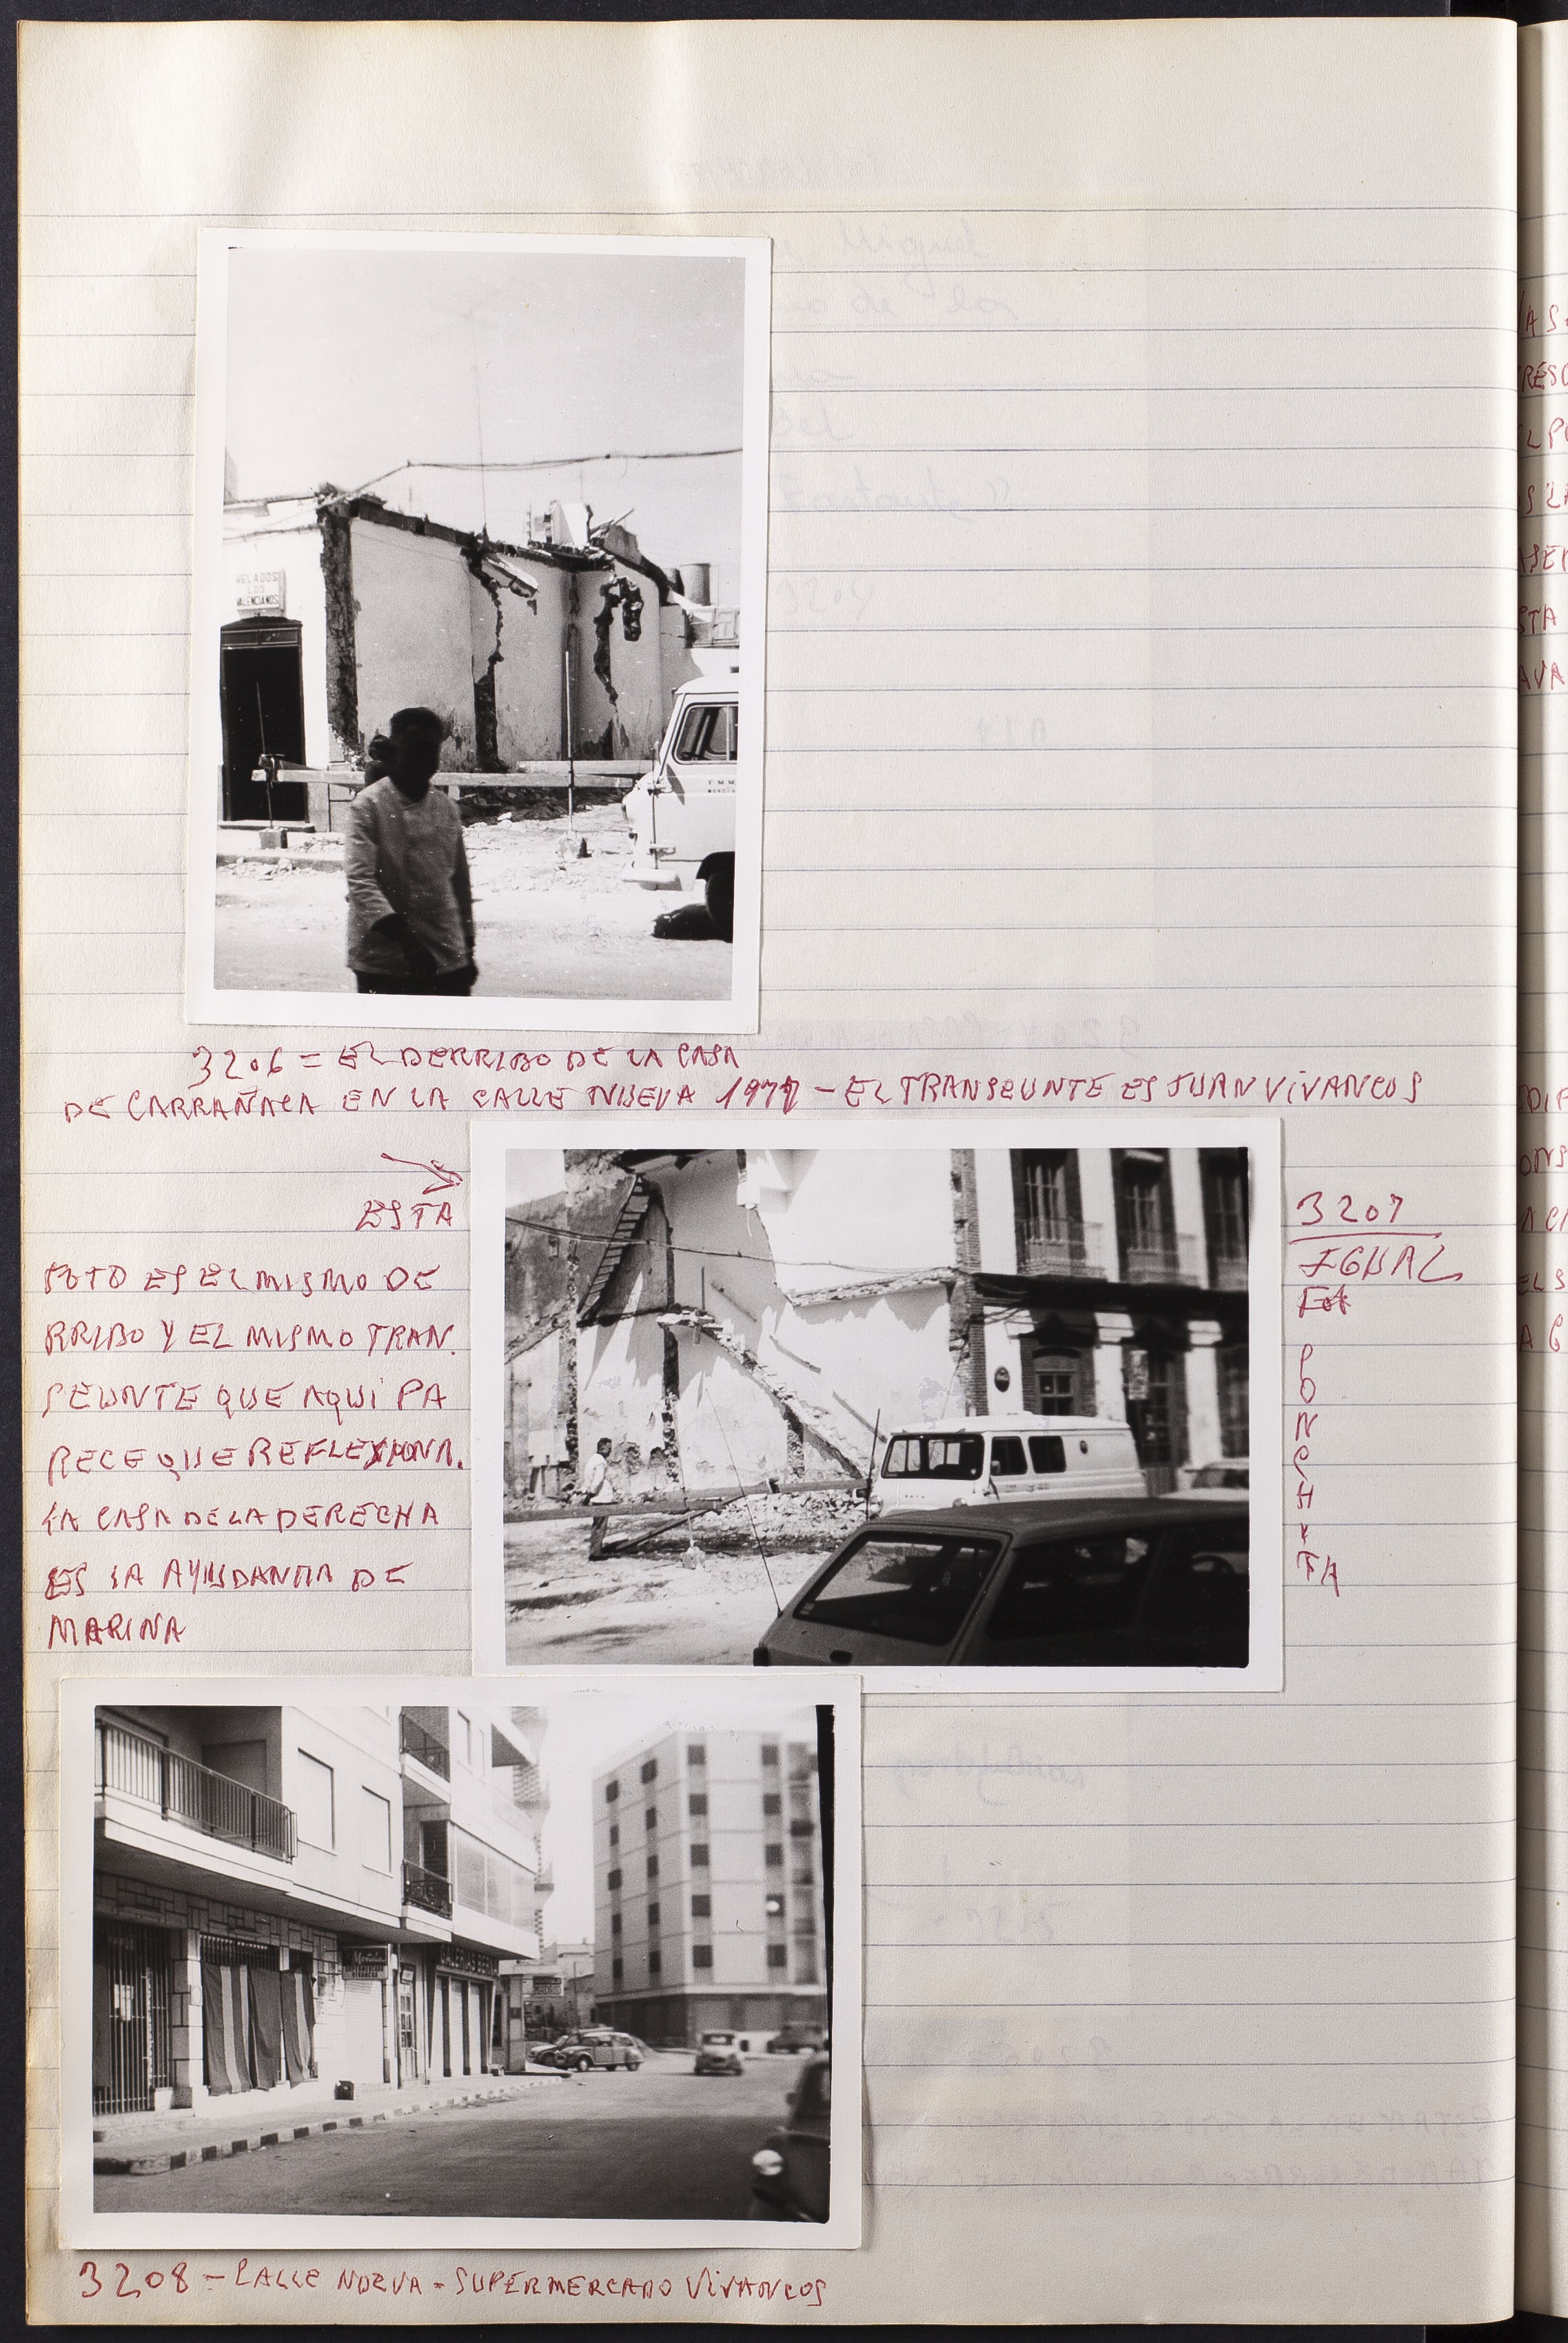 HELADOS
LOS
VALENCIANOS
3206 = EL DERRIBO DE LA CASA
DE CARRAÑACA EN LA CALLE NUEVA 1977 - EL TRANSEUNTE ES JUAN VIVANCOS
ESTA
FOTO ES EL MISMO DE
RRIBO Y EL MISMO TRAN.
SEUNTE QUE AQUI PA
RECE QUE REFLEXIONA.
LA CASA DE LA DERECHA
ES LA AYUDANTIA DE
MARINA
3207
IGUAL
P
O
N
C
H
I
TA
GALERIAS
3208 - CALLE NUEVA - SUPERMERCADO VIVANCOS